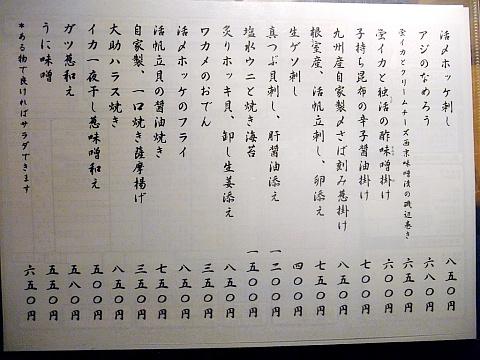 活〆ホッケ刺し 八五〇円
アジのなめろう 六八〇円
蛍イカとクリームチーズ西京味噌漬の磯辺巻き 六五〇円
蛍イカと独活の酢味噌掛け 六〇〇円
子持ち昆布の辛子醤油掛け 七〇〇円
九州産自家製〆さば刻み葱掛け 八五〇円
根室産、活帆立刺し、卵添え 七五〇円
生ゲソ刺し 四〇〇円
真つぶ貝刺し、肝醤油添え 一二〇〇円
塩水ウニと焼き海苔 一五〇〇円
炙りホッキ貝、卸し生姜添え 八五〇円
ワカメのおでん 三五〇円
活〆ホッケのフライ 八五〇円
活帆立貝の醤油焼き 七五〇円
自家製、一口焼き薩摩揚げ 三五〇円
大助ハラス焼き 八五〇円
イカ一夜干し葱味噌和え 五〇〇円
ガツ葱和え 五八〇円
うに味噌 五五〇円
*ある物で良ければサラダできます 六五〇円